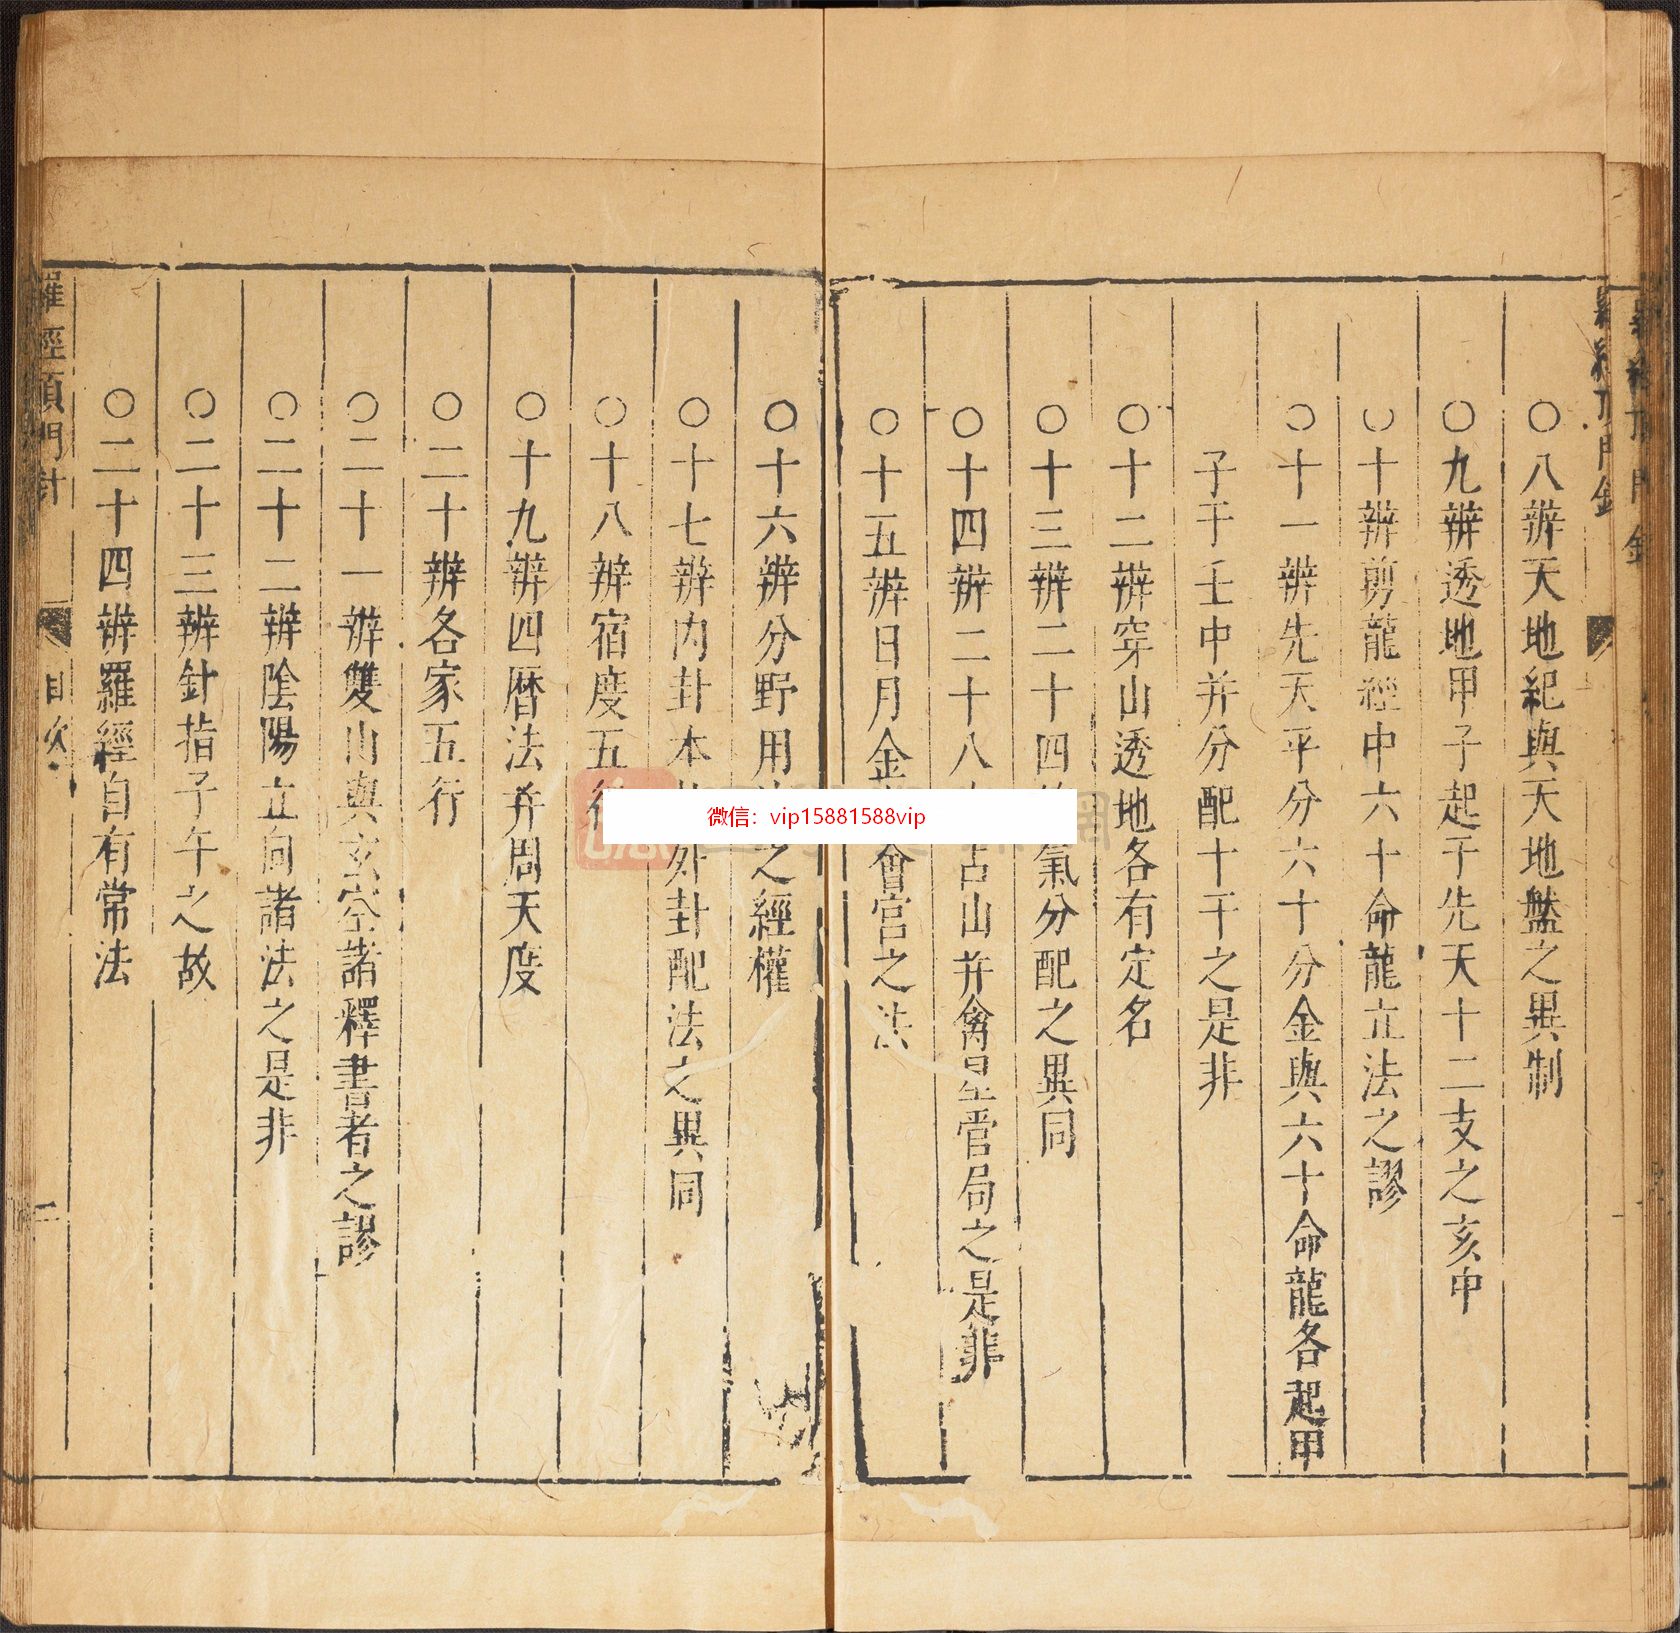 〇八辨天地紀與天地盤之異制
〇九辨透地甲子起于先天十二支之亥中
〇十辨剪龍經中六十命龍立法之謬
〇十一辨先天平分六十分金與六十命龍各起甲
子于壬中并分配十干之是非
〇十二辨穿山透地各有定名
〇十三辨二十四 氣分配之異同
〇十四辨二十八 占山并禽星管局之是非
〇十五辨日月金 會宮之法
〇十六辨分野用 之經權
〇十七辨內卦本 外卦配法之異同
〇十八辨宿度五行
〇十九辨四曆法并周天度
〇二十辨各家五行
〇二十一辨雙山與玄空諸釋書者之謬
〇二十二辨陰陽立向諸法之是非
〇二十三辨針指子午之故
〇二十四辨羅經自有常法
羅經頂門針 目次 二
微信：vip15881588vip